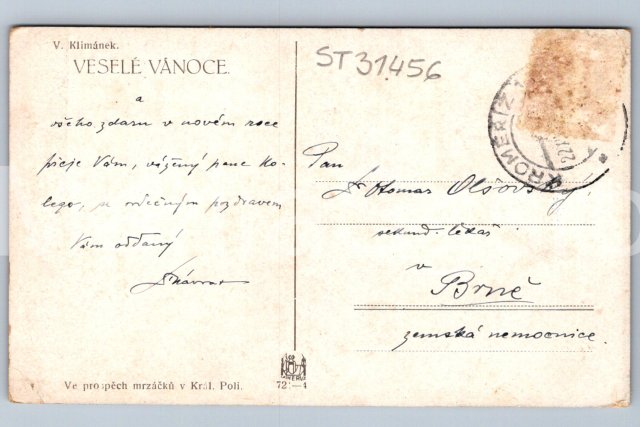 V. Klimánek.
VESELÉ VÁNOCE.
a
všeho zdaru v novém roce
přeje Vám, vážený pane Ko-
lego, se srdečným pozdravem
Vám oddaný
ST31456
KROMĚŘÍŽ
Pan
Dr Otomar Olšovský,
sekund. lékař
v
Brně
zemská nemocnice.
Ve prospěch mrzáčků v Král. Poli.